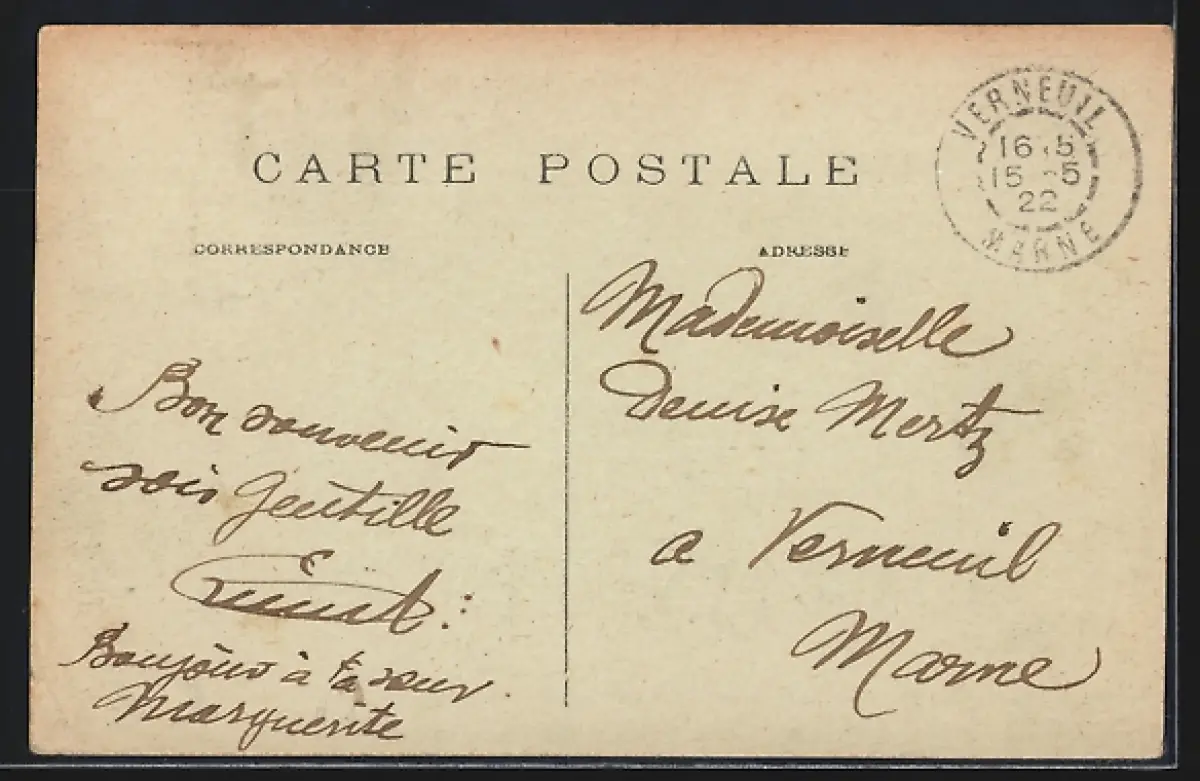 CARTE POSTALE
CORRESPONDANCE
ADRESSE
VERNEUIL
16 5
15 5
22
MARNE
Bon souvenir
sois gentille
Bonjour à ta sœur
Marguerite
Mademoiselle
Denise Mertz
a Verneuil
Marne